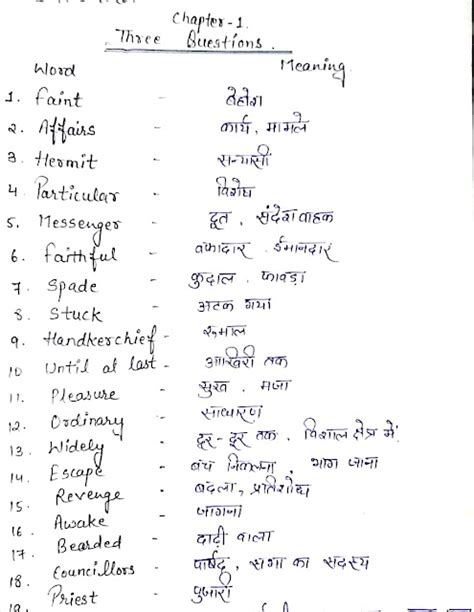 Chapter-1.
Three Questions.
Word Meaning
1. faint - बेहोश
2. Affairs - कार्य, मामले
3. Hermit - सन्यासी
4. Particular - विशेष
5. Messenger - दूत, संदेशवाहक
6. faithful - वफादार, ईमानदार
7. Spade - कुदाल, फावड़ा
8. Stuck - अटक गया
9. Handkerchief - रुमाल
10 Until at last - आखिरी तक
11. Pleasure - सुख, मजा
12. Ordinary - साधारण
13. Widely - दूर-दूर तक, विशाल क्षेत्र में
14. Escape - बच निकलना, भाग जाना
15. Revenge - बदला, प्रतिशोध
16. Awake - जागना
17. Bearded - दाढ़ी वाला
18. Councillors - पार्षद, सभा का सदस्य
19. Priest - पुजारी